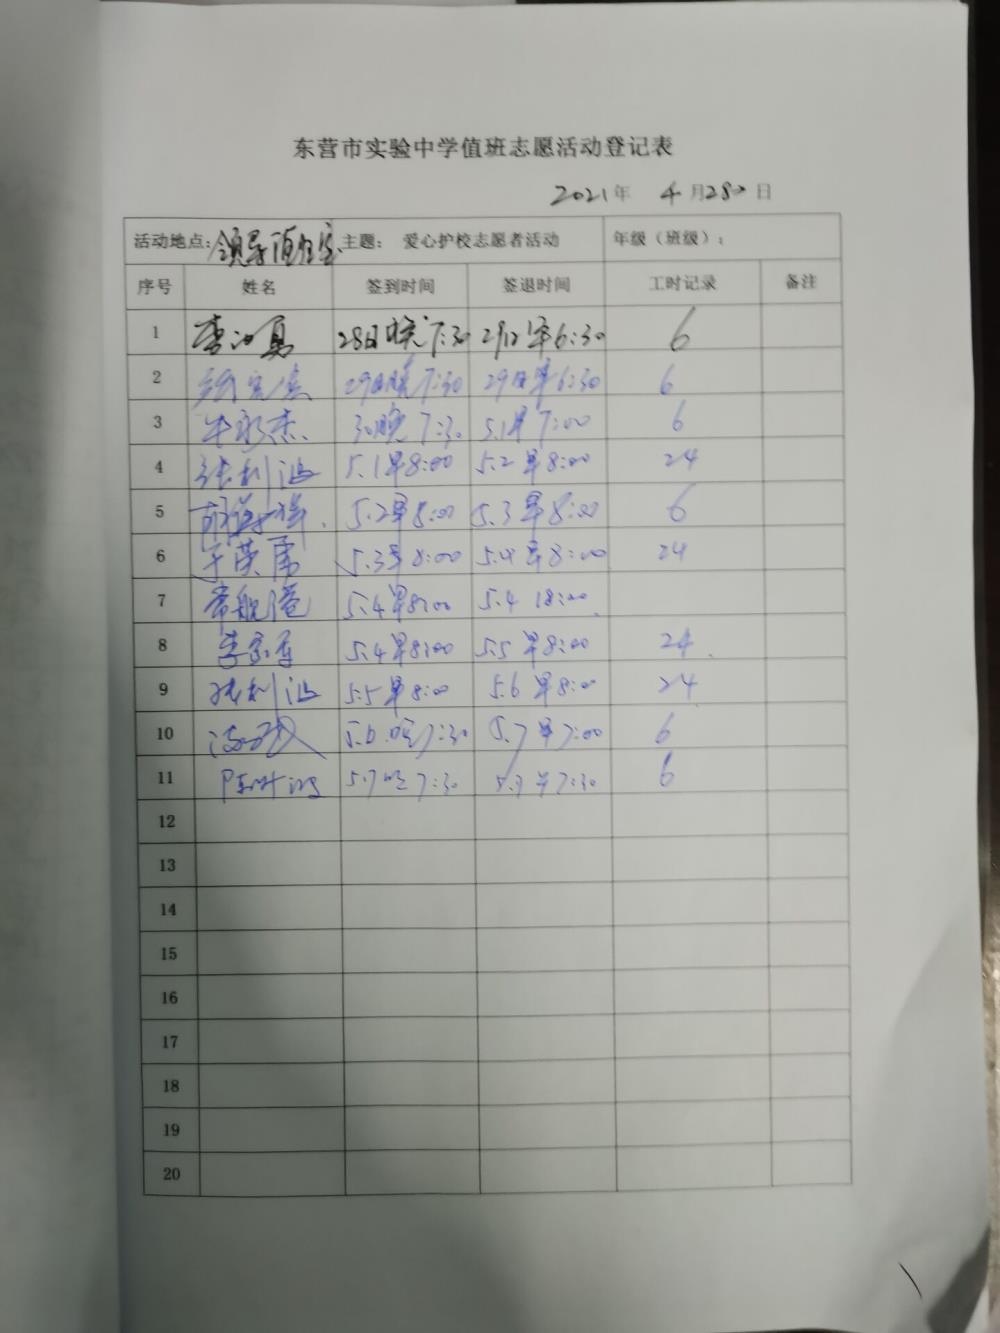 东营市实验中学值班志愿活动登记表
2021年 4月28日
活动地点:领导值班室 主题: 爱心护校志愿者活动 年级（班级）:
序号 姓名 签到时间 签退时间 工时记录 备注
1 28日晚7:30 29日早6:30 6
2 29日晚7:30 29日早6:30 6
3 牛永杰 30晚7:30 5.1早7:00 6
4 张利鸿 5.1早8:00 5.2早8:00 24
5 5.2早8:00 5.3早8:00 6
6 于英席 5.3早8:00 5.4早8:00 24
7 5.4早8:00 5.4 18:00
8 5.4早8:00 5.5早8:00 24
9 张利鸿 5.5早8:00 5.6早8:00 24
10 5.6晚7:30 5.7早7:00 6
11 5.7晚7:30 早7:30 6
12
13
14
15
16
17
18
19
20